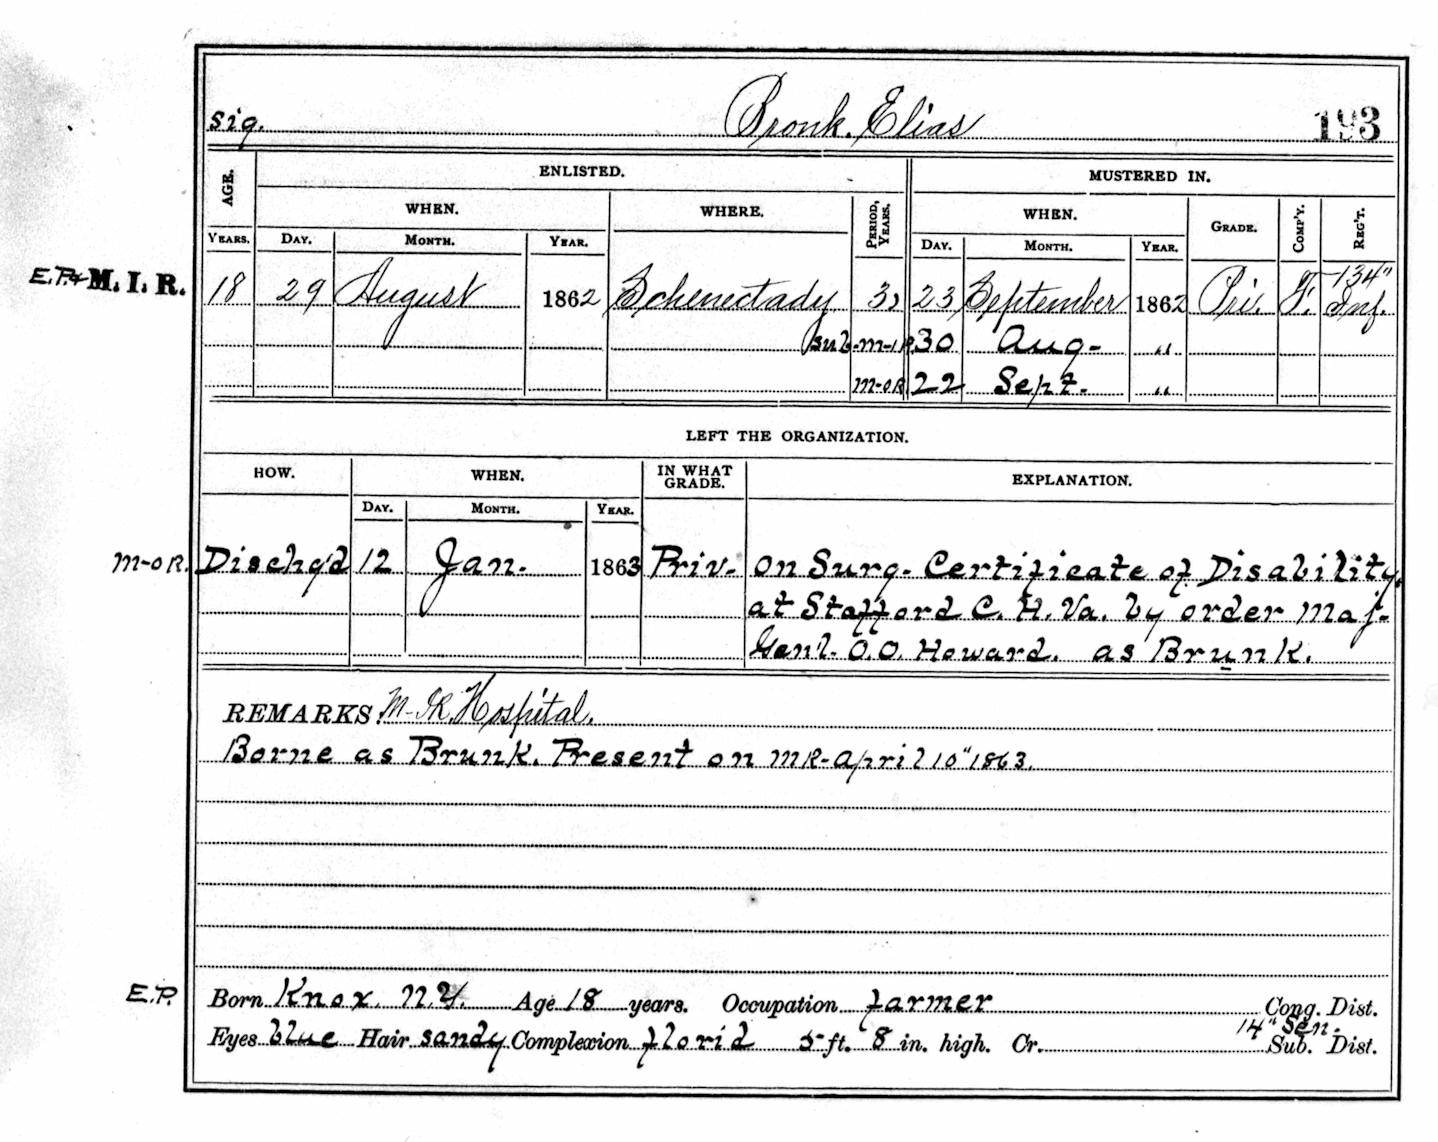 sig. Bronk. Elias 193
ENLISTED. MUSTERED IN.
AGE. WHEN. WHERE. PERIOD, YEARS. WHEN. GRADE. COMP'Y. REG'T.
YEARS. DAY. MONTH. YEAR. DAY. MONTH. YEAR.
E.P.+ M. I. R. 18 29 August 1862 Schenectady 3, 23 September 1862 Pri. F. 134" Inf.
sub-m-i R 30 Aug- "
m-o R 22 Sept. "
LEFT THE ORGANIZATION.
HOW. WHEN. IN WHAT GRADE. EXPLANATION.
DAY. MONTH. YEAR.
m-o R. Disch'g'd 12 Jan. 1863 Priv- on Surg- Certificate of Disability,
at Stafford C. H. Va. by order Maj-
Gen'l- O.O. Howard. as Brunk.
REMARKS: M-R. Hospital.
Borne as Brunk. Present on MR-April 10" 1863.
E.P. Born Knox N.Y. Age 18 years. Occupation farmer Cong. Dist.
14" Sen.
Eyes blue Hair sandy Complexion florid 5 ft. 8 in. high. Cr. Sub. Dist.